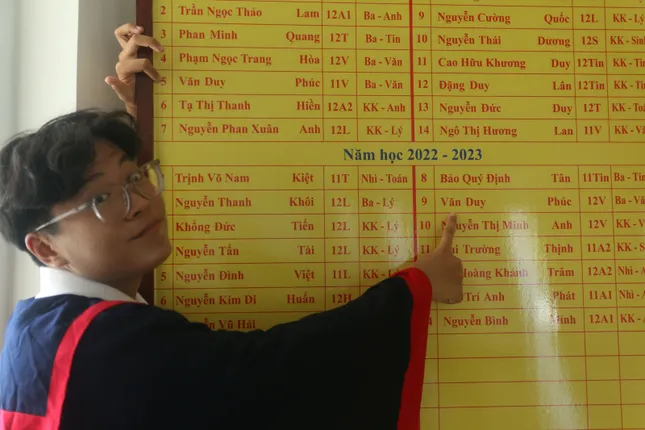 2 Trần Ngọc Thảo Lam 12A1 Ba - Anh 9 Nguyễn Cường Quốc 12L KK - Lý
3 Phan Minh Quang 12T Ba - Tin 10 Nguyễn Thái Dương 12S KK - Sinh
4 Phạm Ngọc Trang Hòa 12V Ba - Văn 11 Cao Hữu Khương Duy 12Tin KK - Tin
5 Văn Duy Phúc 11V Ba - Văn 12 Đặng Duy Lân 12Tin KK - Tin
6 Tạ Thị Thanh Hiền 12A2 KK - Anh 13 Nguyễn Đức Duy 12T KK - Toá
7 Nguyễn Phan Xuân Anh 12L KK - Lý 14 Ngô Thị Hương Lan 11V KK - V
Năm học 2022 - 2023
Trịnh Võ Nam Kiệt 11T Nhì - Toán 8 Bảo Quý Định Tân 11Tin Ba - Tin
Nguyễn Thanh Khôi 12L Ba - Lý 9 Văn Duy Phúc 12V Ba - Vă
Khổng Đức Tiến 12L KK - Lý 10 Nguyễn Thị Minh Anh 12V KK - V
Nguyễn Tấn Tài 12L KK - Lý 11 Trường Thịnh 11A2 KK - S
5 Nguyễn Đình Việt 11L KK - Hoàng Khánh Trâm 12A2 Nhì - A
6 Nguyễn Kim Di Huấn 12H Trí Anh Phát 11A1 Nhì - A
Nguyễn Vũ Hải Nguyễn Bình Minh 12A1 KK - A